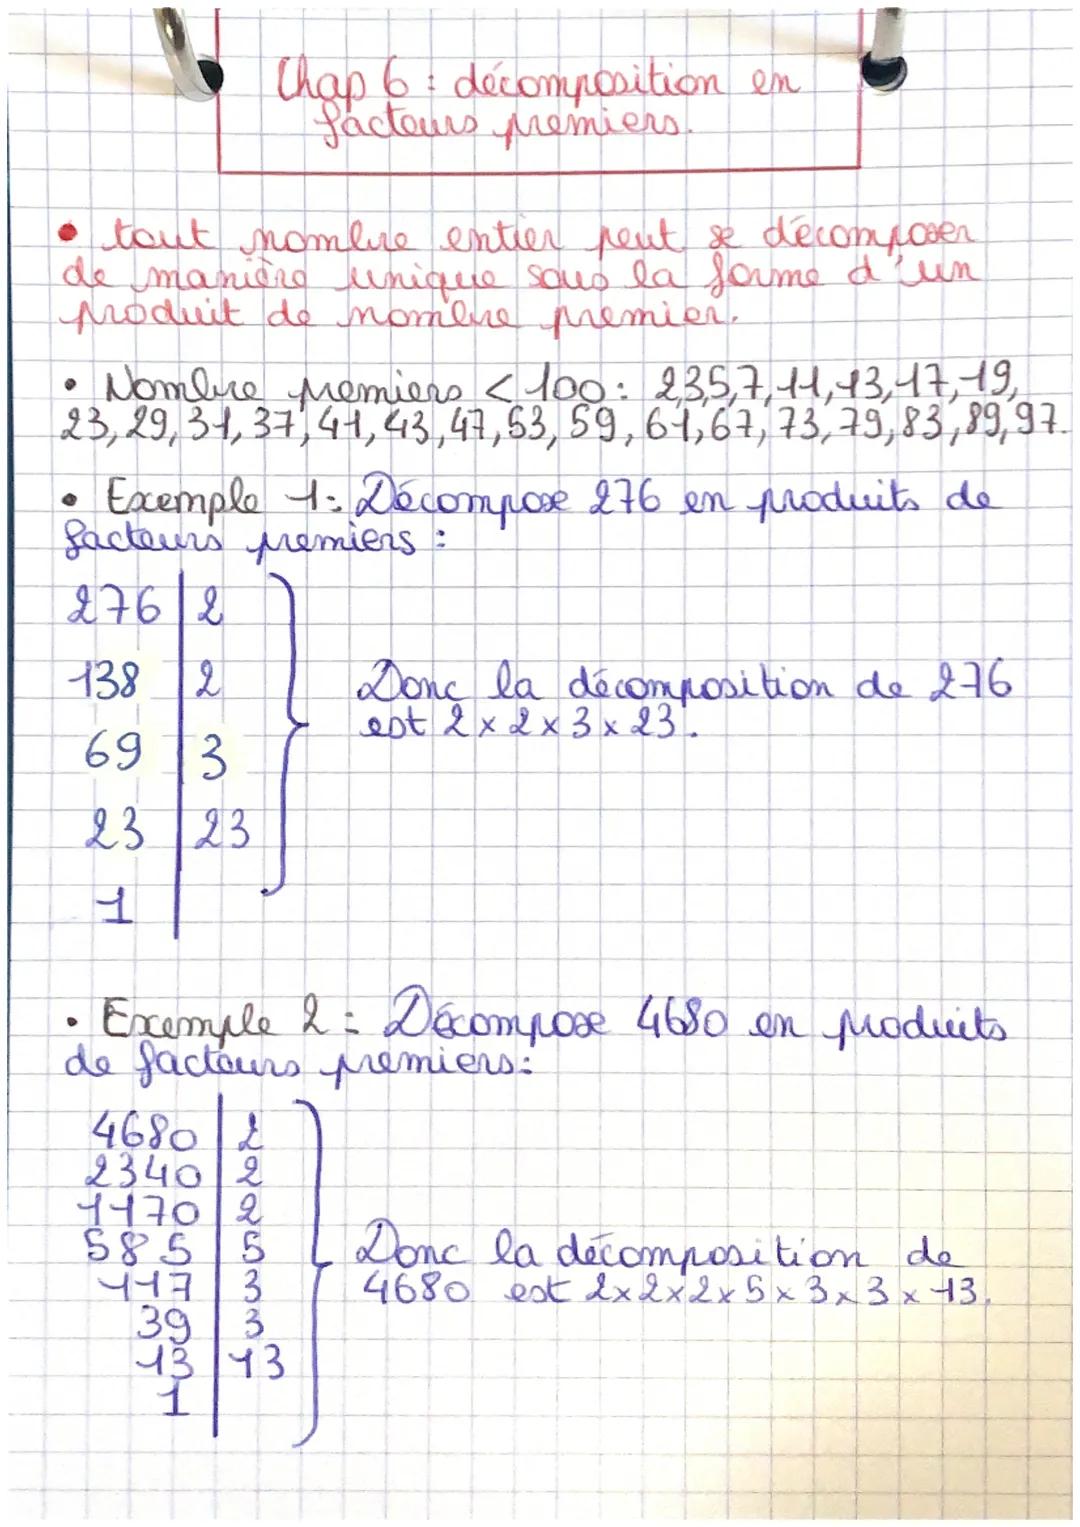 Chap 6 : décomposition en
facteurs premiers.
• tout nombre entier peut se décomposer
de manière unique sous la forme d'un
produit de nombre premier.
• Nombre premiers < 100 : 2,3,5,7,11,13,17,19,
23,29,31,37,41,43,47,53,59,61,67,73,79,83,89,97.
• Exemple 1: Décompose 276 en produits de
facteurs premiers :
276 | 2
138 | 2
69 | 3
23 | 23
1
Donc la décomposition de 276
est 2 x 2 x 3 x 23.
• Exemple 2 : Décompose 4680 en produits
de facteurs premiers:
4680 | 2
2340 | 2
1170 | 2
585 | 5
117 | 3
39 | 3
13 | 13
1
Donc la décomposition de
4680 est 2x2x2x5x3x3x13.